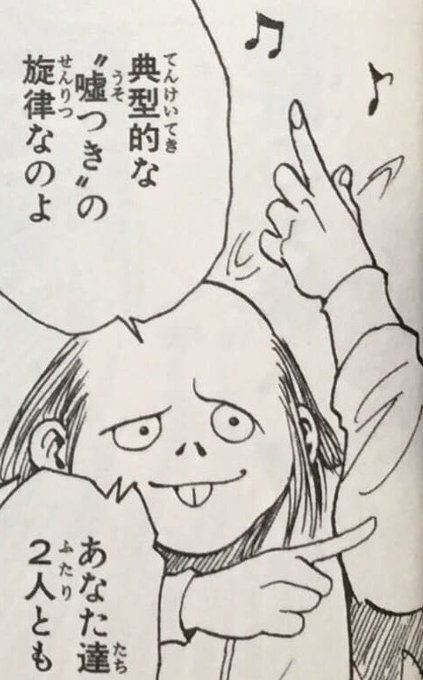 典型的な
“嘘つき”の
旋律なのよ
あなた達
2人とも